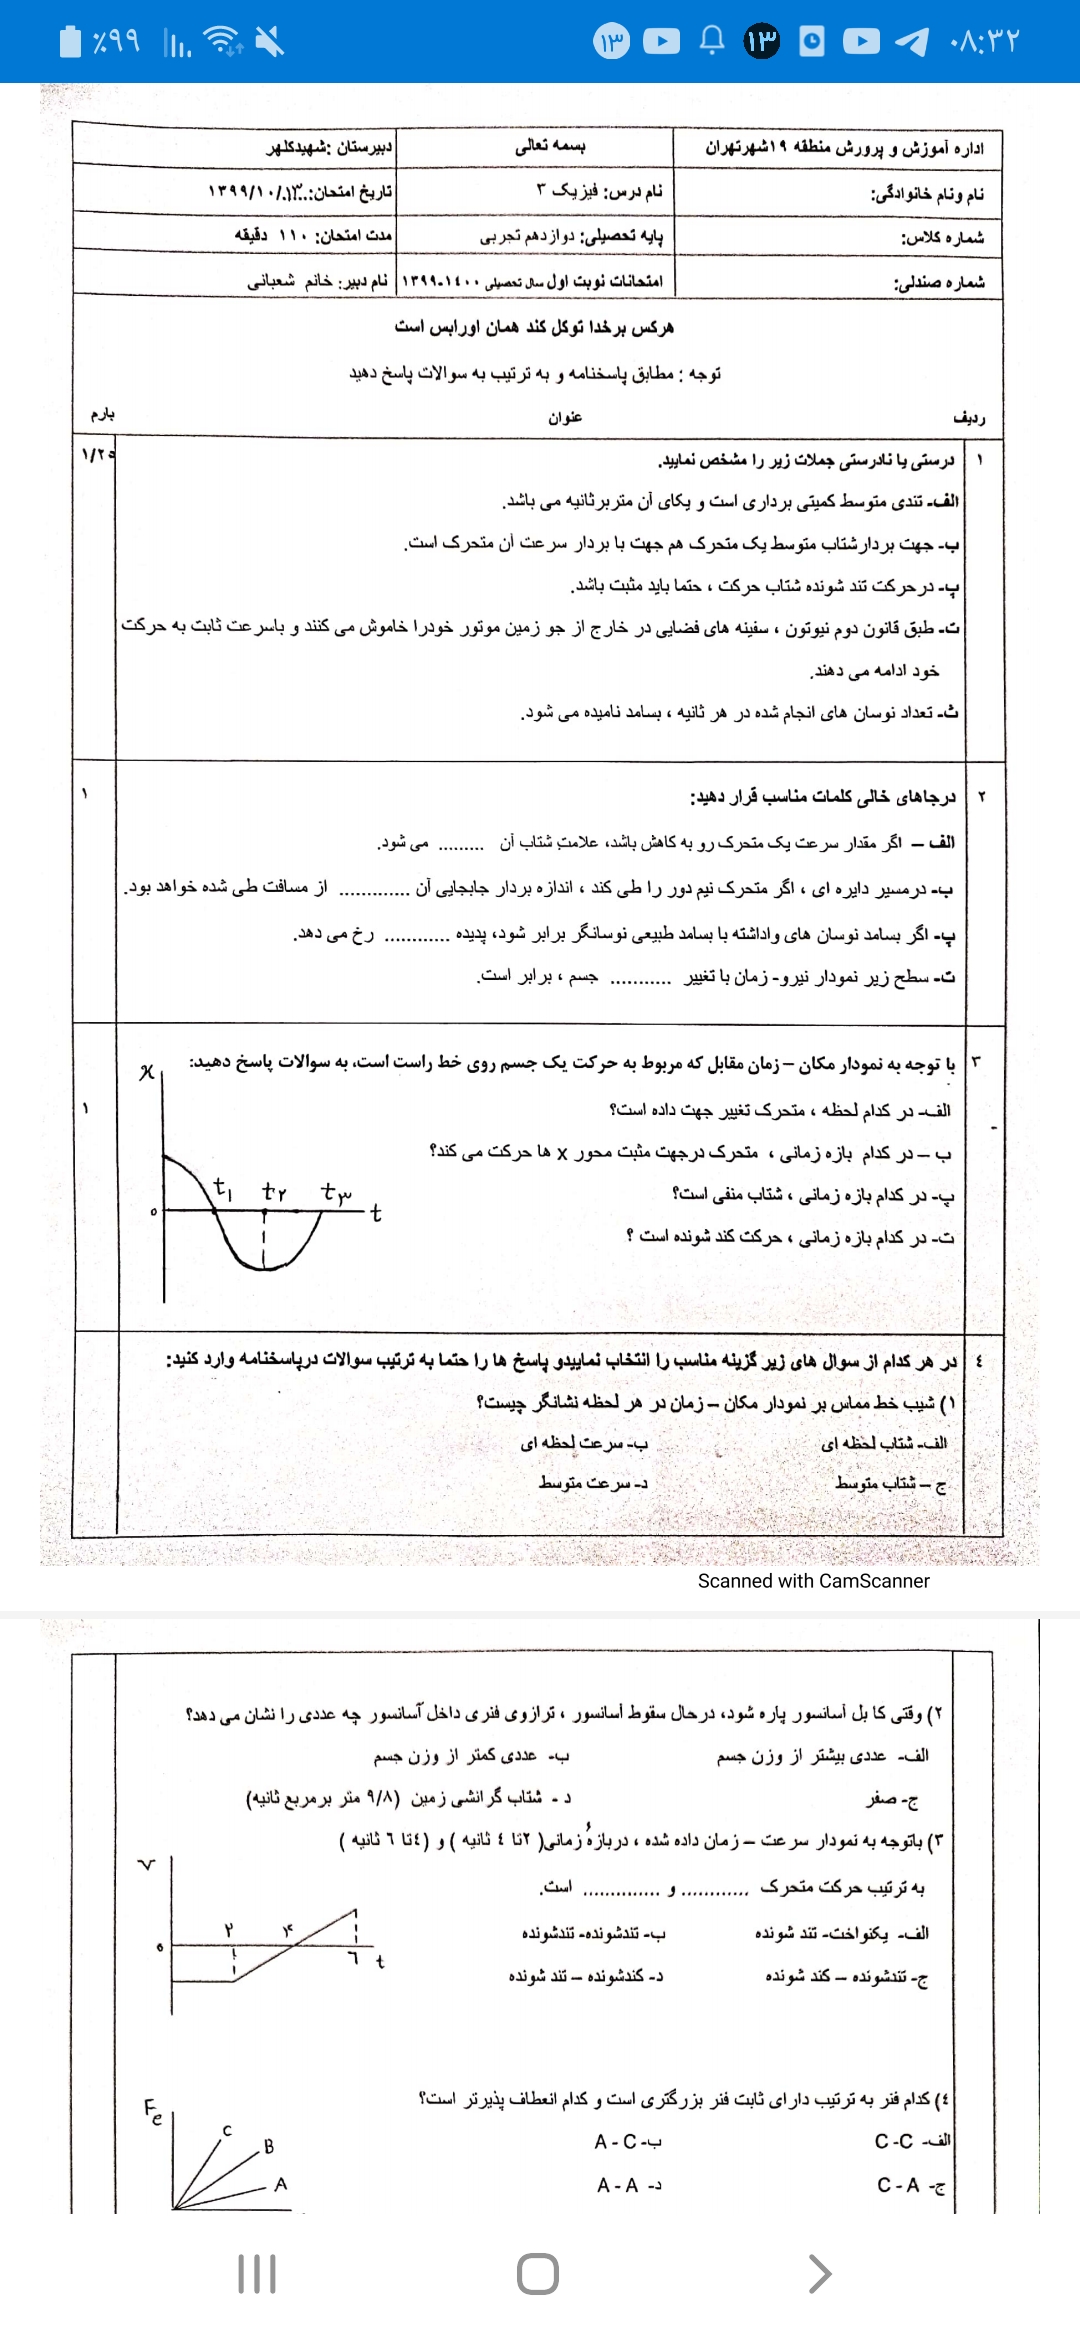 ٪۹۹
۱۳
۱۳
۰۸:۳۲
اداره آموزش و پرورش منطقه ۱۹شهرتهران
بسمه تعالی
دبیرستان :شهیدکلهر
نام ونام خانوادگی:
نام درس: فیزیک ۳
تاریخ امتحان:..۱۳./۱۳۹۹/۱۰
شماره کلاس:
پایه تحصیلی: دوازدهم تجربی
مدت امتحان: ۱۱۰ دقیقه
شماره صندلی:
امتحانات نوبت اول سال تحصیلی ۱۴۰۰-۱۳۹۹
نام دبیر: خانم شعبانی
هرکس برخدا توکل کند همان اورابس است
توجه : مطابق پاسخنامه و به ترتیب به سوالات پاسخ دهید
ردیف
عنوان
بارم
۱
درستی یا نادرستی جملات زیر را مشخص نمایید.
۱/۲۵
الف- تندی متوسط کمیتی برداری است و یکای آن متربرثانیه می باشد.
ب- جهت بردارشتاب متوسط یک متحرک هم جهت با بردار سرعت آن متحرک است.
پ- درحرکت تند شونده شتاب حرکت ، حتما باید مثبت باشد.
ت- طبق قانون دوم نیوتون ، سفینه های فضایی در خارج از جو زمین موتور خودرا خاموش می کنند و باسرعت ثابت به حرکت
خود ادامه می دهند.
ث- تعداد نوسان های انجام شده در هر ثانیه ، بسامد نامیده می شود.
۲
درجاهای خالی کلمات مناسب قرار دهید:
۱
الف – اگر مقدار سرعت یک متحرک رو به کاهش باشد، علامت شتاب آن ......... می شود.
ب- درمسیر دایره ای ، اگر متحرک نیم دور را طی کند ، اندازه بردار جابجایی آن ............. از مسافت طی شده خواهد بود.
پ- اگر بسامد نوسان های واداشته با بسامد طبیعی نوسانگر برابر شود، پدیده ............ رخ می دهد.
ت- سطح زیر نمودار نیرو- زمان با تغییر ........... جسم ، برابر است.
۳
با توجه به نمودار مکان – زمان مقابل که مربوط به حرکت یک جسم روی خط راست است، به سوالات پاسخ دهید:
۱
الف- در کدام لحظه ، متحرک تغییر جهت داده است؟
ب – در کدام بازه زمانی ، متحرک درجهت مثبت محور x ها حرکت می کند؟
پ- در کدام بازه زمانی ، شتاب منفی است؟
ت- در کدام بازه زمانی ، حرکت کند شونده است ؟
x
t۱ t۲ t۳
۰
t
٤
در هر کدام از سوال های زیر گزینه مناسب را انتخاب نماییدو پاسخ ها را حتما به ترتیب سوالات درپاسخنامه وارد کنید:
۱) شیب خط مماس بر نمودار مکان – زمان در هر لحظه نشانگر چیست؟
الف- شتاب لحظه ای
ب- سرعت لحظه ای
ج – شتاب متوسط
د- سرعت متوسط
Scanned with CamScanner
۲) وقتی کا بل آسانسور پاره شود، درحال سقوط آسانسور ، ترازوی فنری داخل آسانسور چه عددی را نشان می دهد؟
الف- عددی بیشتر از وزن جسم
ب- عددی کمتر از وزن جسم
ج- صفر
د - شتاب گرانشی زمین (۹/۸ متر برمربع ثانیه)
۳) باتوجه به نمودار سرعت – زمان داده شده ، دربازهٔ زمانی( ۲تا ٤ ثانیه ) و (٤تا ٦ ثانیه )
به ترتیب حرکت متحرک ............ و .............. است.
الف- یکنواخت- تند شونده
ب- تندشونده- تندشونده
ج- تندشونده – کند شونده
د- کندشونده – تند شونده
v
۰
۲
۴
٦
t
٤) کدام فنر به ترتیب دارای ثابت فنر بزرگتری است و کدام انعطاف پذیرتر است؟
الف- C-C
ب- A-C
ج- C-A
د- A-A
Fe
C
B
A